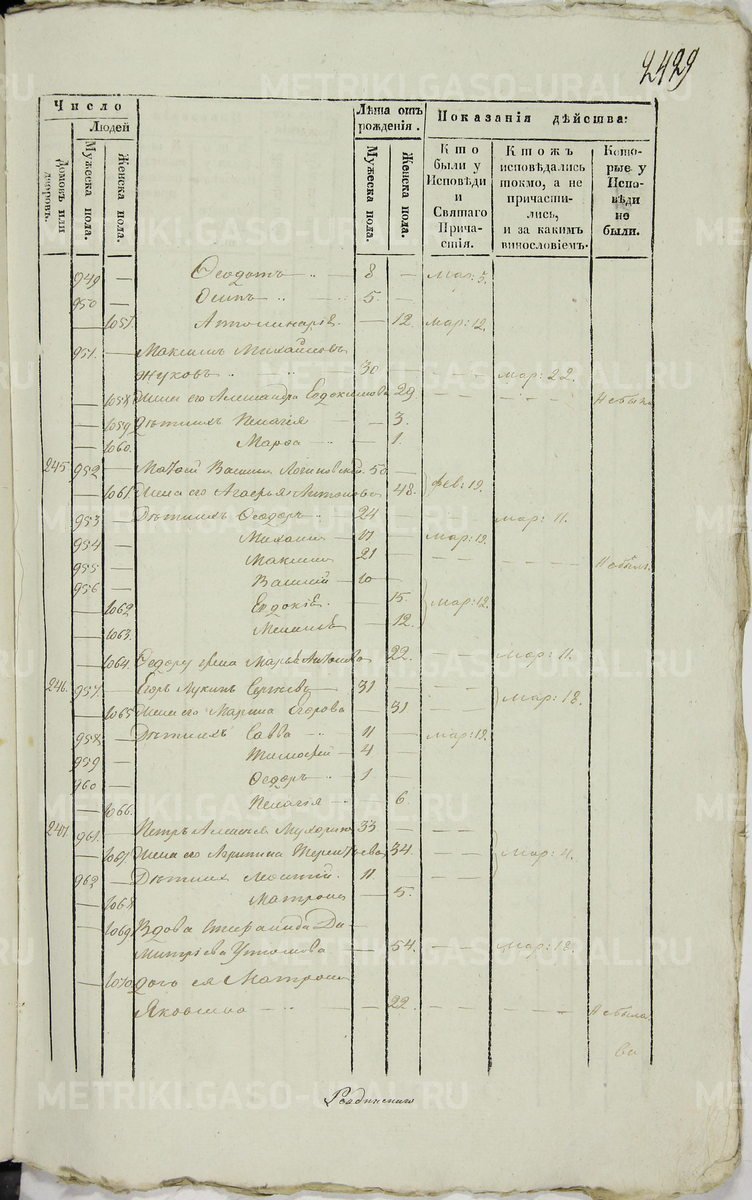 2429
Число
Людей
Домовъ или дворовъ.
Мужеска пола.
Женска пола.
Лѣта отъ рожденія.
Мужеска пола.
Женска пола.
Показанія дѣйства:
Кто были у Исповѣди и Святаго Причастія.
Ктожъ исповѣдались токмо, а не причастились, и за какимъ винословіемъ.
Которые у Исповѣди не были.
949 — Ѳеодотъ — 8 — Мар: 5.
950 — Осипъ — 5 —
— 1057. Апполинарія — 12 Мар: 12.
951 — Максимъ Михайловъ
Жуковъ 30 — Мар: 22.
— 1058 Жена его Александра Евдокимова 29 — Не была
— 1059 Дѣти ихъ Пелагія — 3.
— 1060. Марѳа — 1.
245. 952 — Матѳей Васильевъ 50 —
— 1061 Жена его Агафья Антонова 48. Фев: 19.
953 — Дѣти ихъ Ѳеодоръ 24 — Мар: 11.
954 — Михаилъ 17 — Мар: 12.
955 — Максимъ 21 — Не былъ.
956 — Василій 10 —
— 1062 Евдокія — 15. Мар: 12.
— 1063. — 12
— 1064. Ѳедора жена Марья 22. — Мар: 11.
246. 957 — Егоръ Лукинъ Сергѣевъ 31 — Мар: 18.
— 1065 Жена его Марина Егорова — 31
958 — Дѣти ихъ Савва 11 — Мар: 12.
959 — Тимоѳей 4 —
960 — Ѳедоръ 1 —
— 1066. Пелагія — 6.
247. 961 — Петръ Алексѣевъ Мухоринъ 33 —
— 1067 Жена его Акулина Терентьева 34. — Мар: 4.
962 — Дѣти ихъ Леонтій. 11 —
— 1068 Матрона — 5.
— 1069 Вдова Степанида Ди-
митріева — 54. — Мар: 18.
— 1070 дочь ея Матрона
Яковлева — 22. — Не была
METRIKI.GASO-URAL.RU